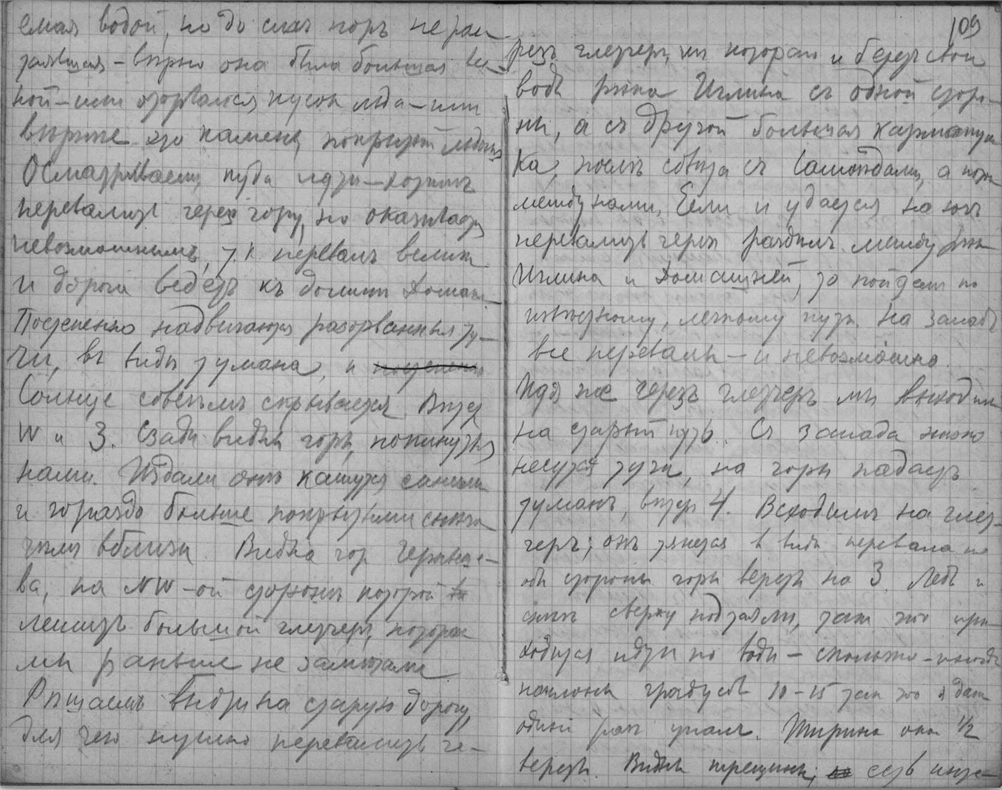 емая водой, но до сихъ поръ не рас
таявшая – вѣрно она была большая вес
ной – или оторвался кусокъ льда – или
вѣрнѣе это камень, покрытый льдомъ
Осматриваемъ, куда идти – хотимъ
перевалить черезъ гору, но оказывается
невозможнымъ, т к перевалъ великъ
и дорога ведетъ къ долинѣ Домаш
Постепенно надвигаются разорванныя ту-
чи, въ видѣ тумана, и
Солнце совсѣмъ скрывается Вѣтеръ
W и 3. Сзади видны горы, покинутыя
нами. Издали онѣ кажутся синими
и гораздо больше покрытыми снѣгомъ
чѣмъ вблизи. Видна гора
ва, на NW-ой сторонѣ которой
лежитъ большой глетчеръ, котораго
мы раньше не замѣтили
Рѣшаемъ выйти на старую дорогу,
для чего нужно перевалить че-
109
резъ глетчеръ, къ которому и беретъ свои
воды рѣка Иглина съ одной сторо-
ны, а съ другой большая
ка, послѣ совѣта съ Самоѣдами, а потомъ
между нами, Если и удастся на югъ
перевалить черезъ раздѣлъ между рѣк
Иглина и Домашней, то пойдемъ по
извѣстному, легкому пути, на западъ
все перевалы – и невозможно.
Идя же черезъ глетчеръ мы выходимъ
на старый путь. Съ запада низко
несутся тучи, на горы падаетъ
туманъ, вѣтеръ 4. Всходимъ на глет
черъ; онъ тянется въ видѣ перевала по
обѣ стороны горы верстъ на 3. Ледъ и
снѣгъ сверху подтаяли, такъ что при
ходится идти по водѣ – скользко – иногда
наклоны градусовъ 10–15 такъ что я даже
одинъ разъ упалъ. Ширина его 1/2
версты. Видны трещины, есть